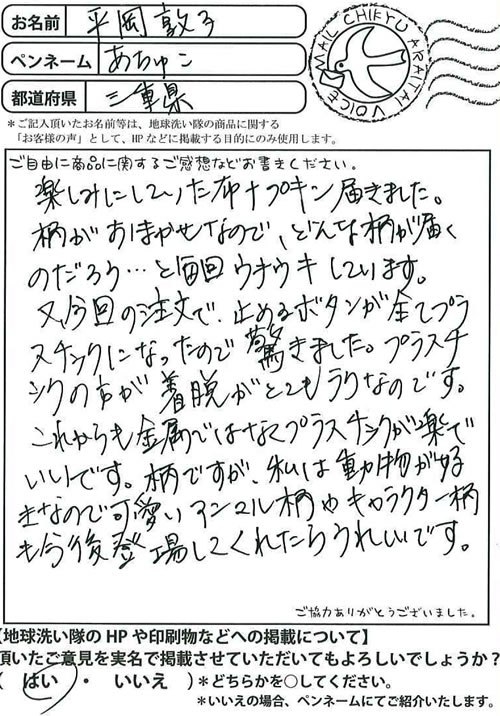 お名前 平岡 敦子
ペンネーム あちゅこ
都道府県 三重県
MAIL CHIKYU ARAITAI VOICE
＊ご記入頂いたお名前等は、地球洗い隊の商品に関する
「お客様の声」として、HPなどに掲載する目的にのみ使用します。
ご自由に商品に関するご感想などお書きください。
楽しみにしていた布ナプキン届きました。
柄がおまかせなので、どんな柄が届く
のだろう…と毎回ウキウキしています。
又、今回の注文で、止めるボタンが全てプラ
スチックになったので驚きました。プラスチ
ックの方が着脱がとてもラクなのです。
これからも金属ではなくプラスチックが楽で
いいです。柄ですが、私は動物が好
きなので可愛いアニマル柄やキャラクター柄
も今後登場してくれたらうれしいです。
ご協力ありがとうございました。
【地球洗い隊のHPや印刷物などへの掲載について】
頂いたご意見を実名で掲載させていただいてもよろしいでしょうか？
（ はい ・ いいえ ）＊どちらかを○してください。
＊いいえの場合、ペンネームにてご紹介いたします。